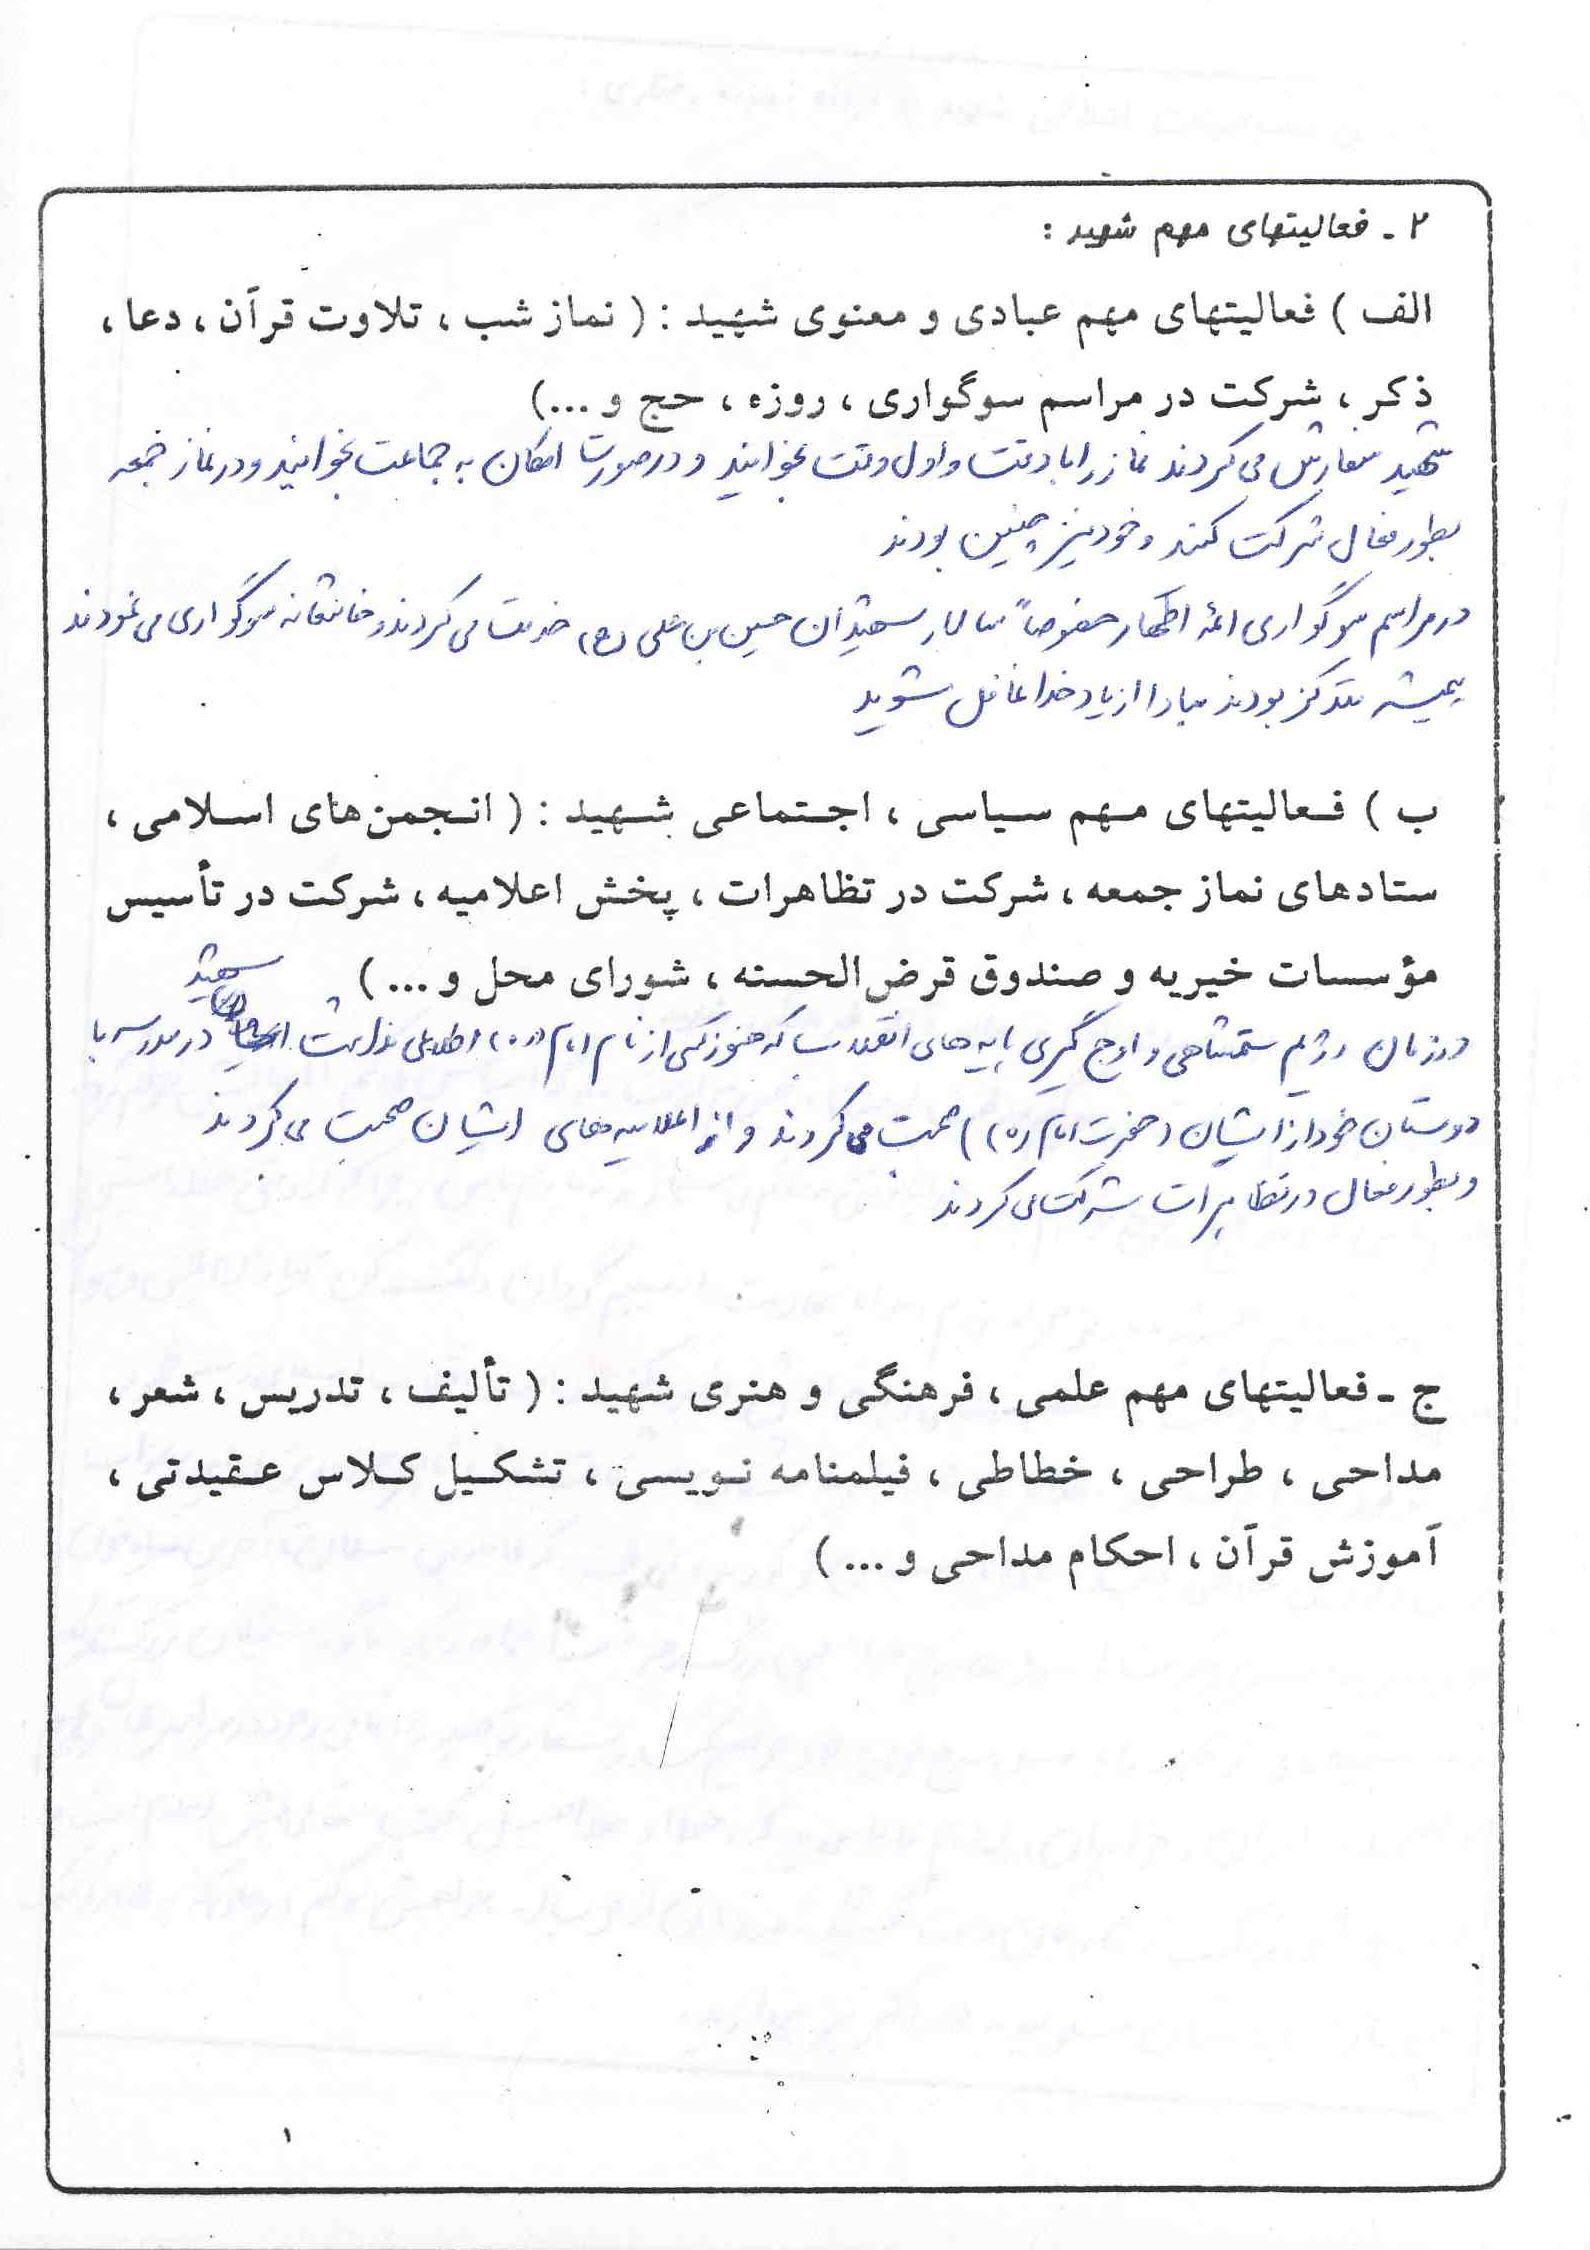 ۲ ـ فعالیتهای مهم شهید :
الف ) فعالیتهای مهم عبادی و معنوی شهید : ( نماز شب ، تلاوت قرآن ، دعا ،
ذکر ، شرکت در مراسم سوگواری ، روزه ، حج و ...)
شهید سفارش می‌کردند نماز را با دقت و اول وقت بخوانید و در صورت امکان به جماعت بخوانید و در نماز جمعه
بطور فعال شرکت کنند و خود نیز چنین بودند
در مراسم سوگواری ائمه اطهار خصوصاً سالار شهیدان حسین بن علی (ع) خدمت می‌کردند و خاشعانه سوگواری می‌نمودند
همیشه متذکر بودند مبادا از یاد خدا غافل شوید
ب ) فعالیتهای مهم سیاسی ، اجتماعی شهید : ( انجمن‌های اسلامی ،
ستادهای نماز جمعه ، شرکت در تظاهرات ، پخش اعلامیه ، شرکت در تأسیس
مؤسسات خیریه و صندوق قرض‌الحسنه ، شورای محل و ...)
شهید
در زمان رژیم ستمشاهی و اوج گیری پایه‌های انقلاب که هنوز کسی از نام امام (ره) اطلاعی نداشت در مدرسه با
دوستان خود از ایشان (حضرت امام (ره)) صحبت می‌کردند و از اعلامیه‌های ایشان صحبت می‌کردند
و بطور فعال در تظاهرات شرکت می‌کردند
ج ـ فعالیتهای مهم علمی ، فرهنگی و هنری شهید : ( تألیف ، تدریس ، شعر ،
مداحی ، طراحی ، خطاطی ، فیلمنامه نویسی ، تشکیل کلاس عقیدتی ،
آموزش قرآن ، احکام مداحی و ...)
۱